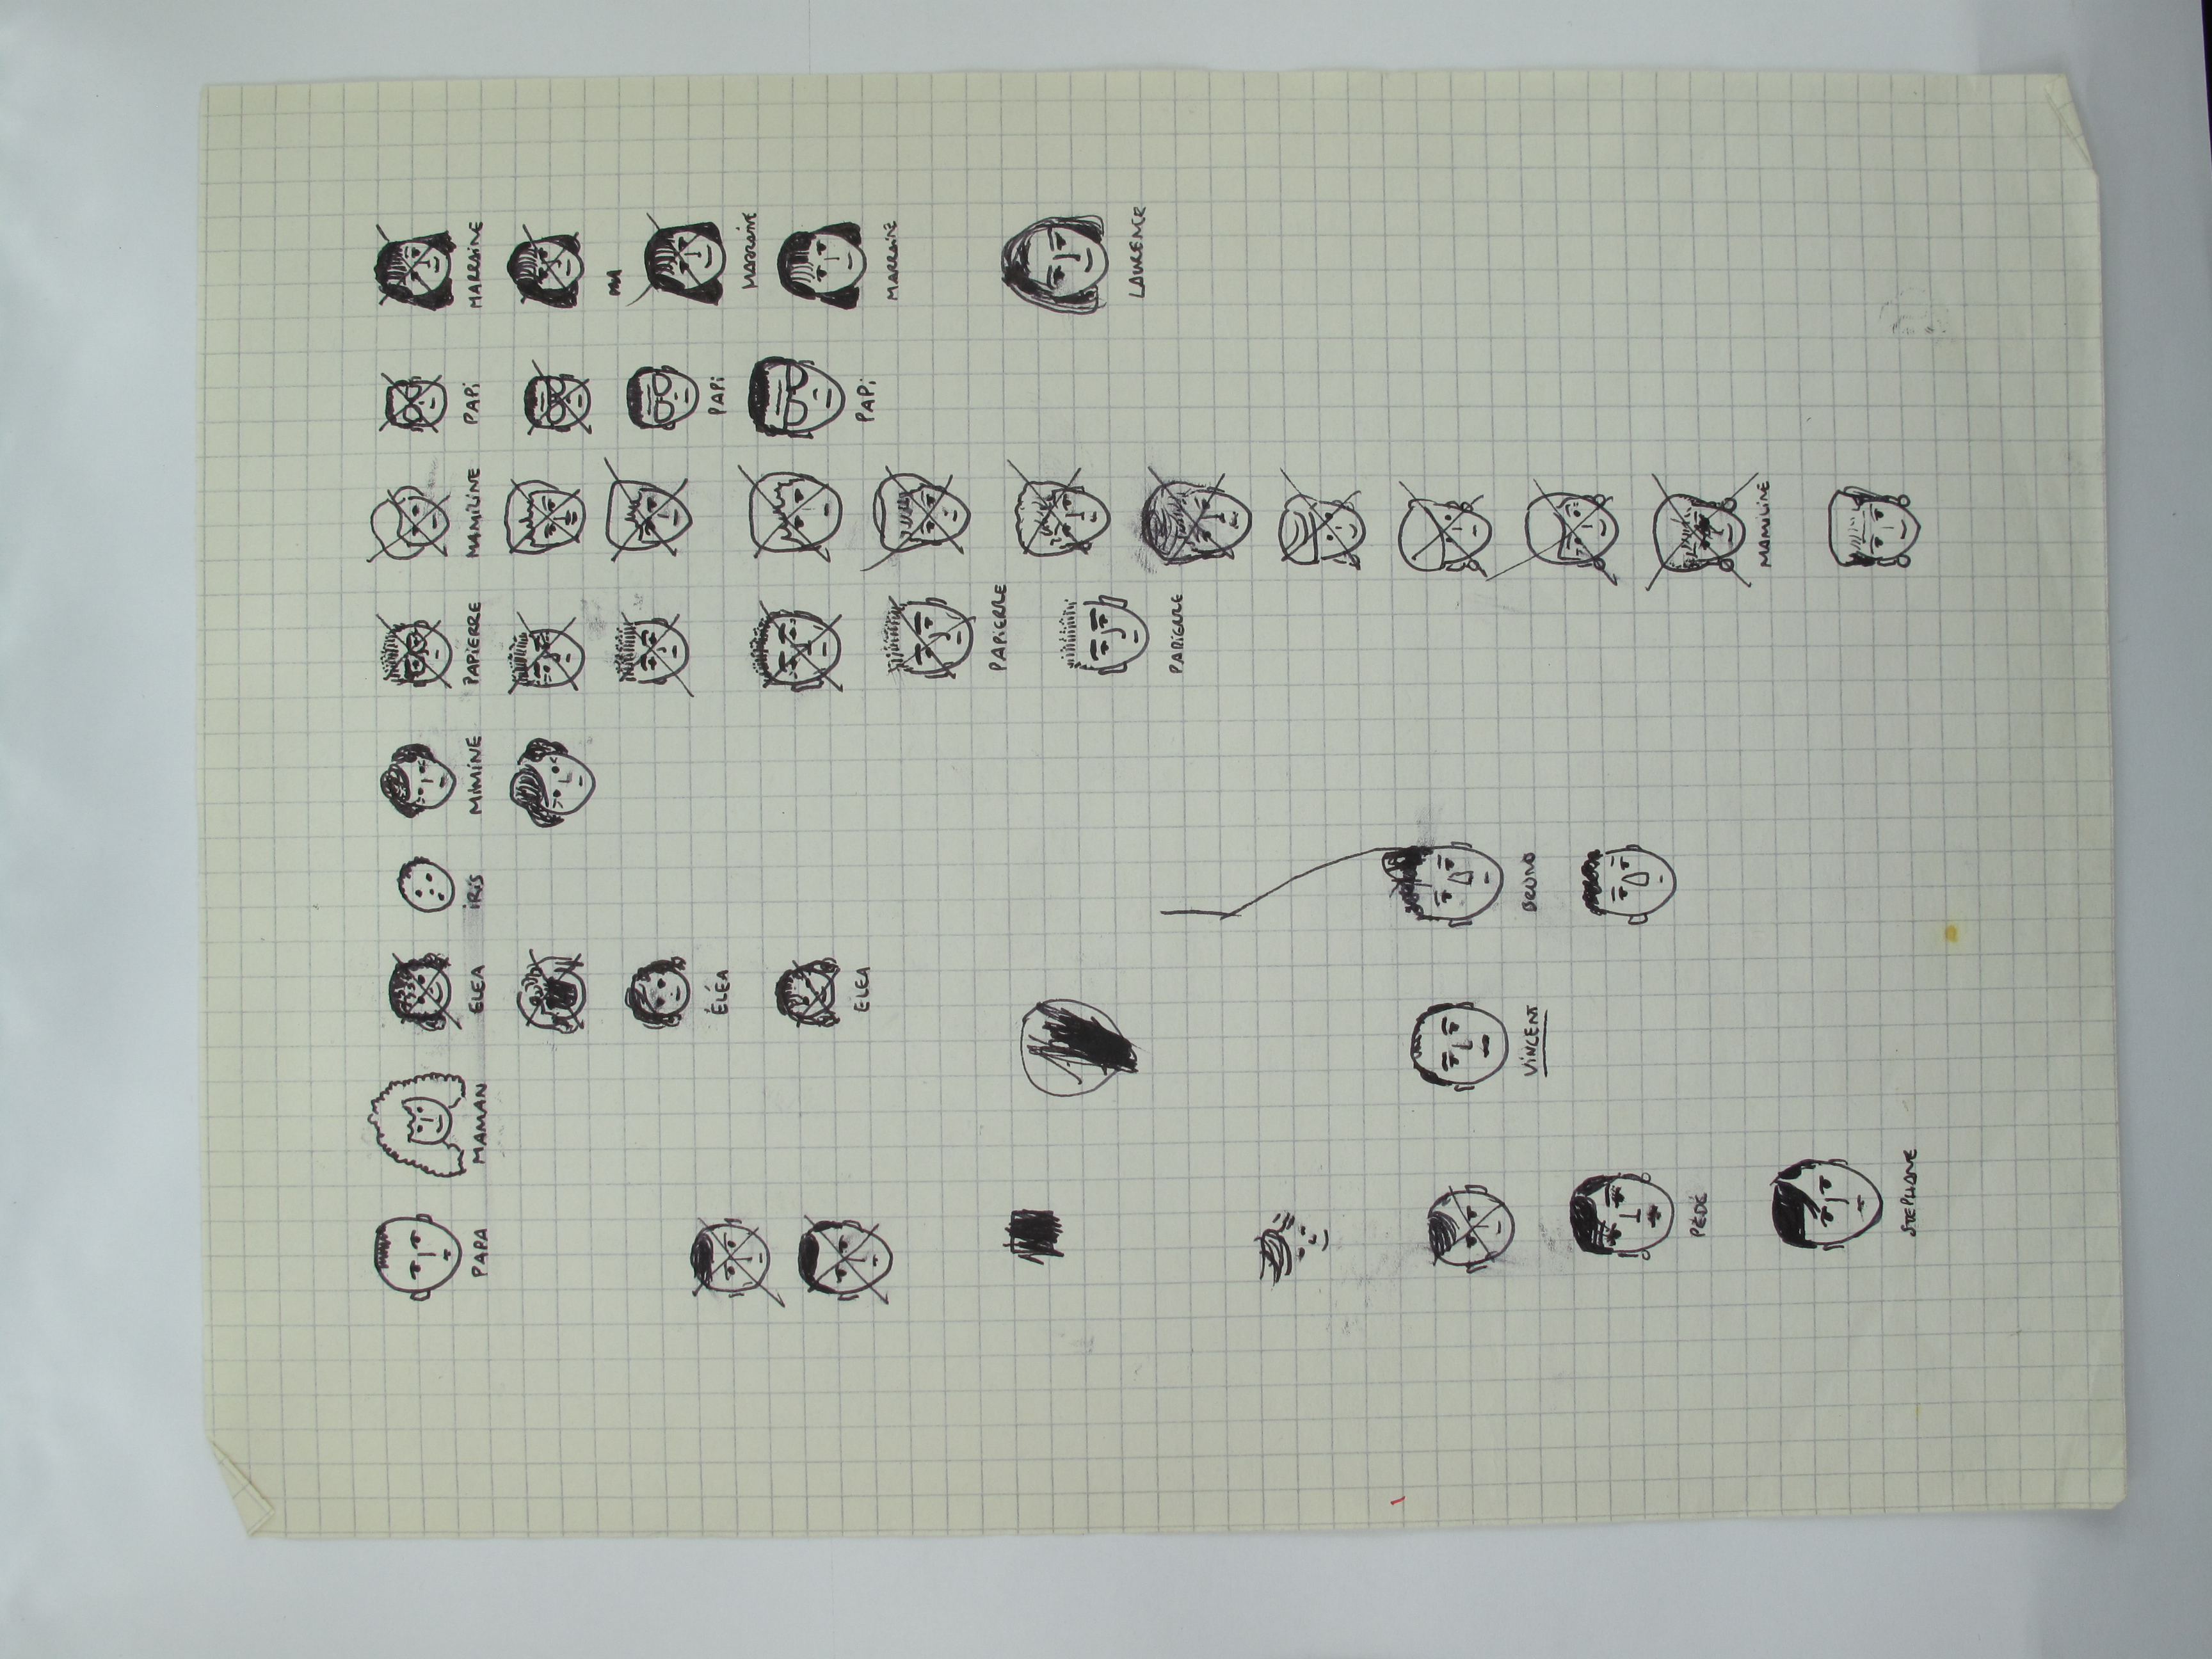 PAPA MAMAN ELEA IRIS MIMINE PAPIERRE MAMILINE PAPI MARRAINE
ÉLÉA PAPI MARRAINE
ELEA PAPI MARRAINE
PAPIERRE
LAURENCE
PAPIERRE
VINCENT BRUNO
PÉDÉ
MAMILINE
STEPHANE